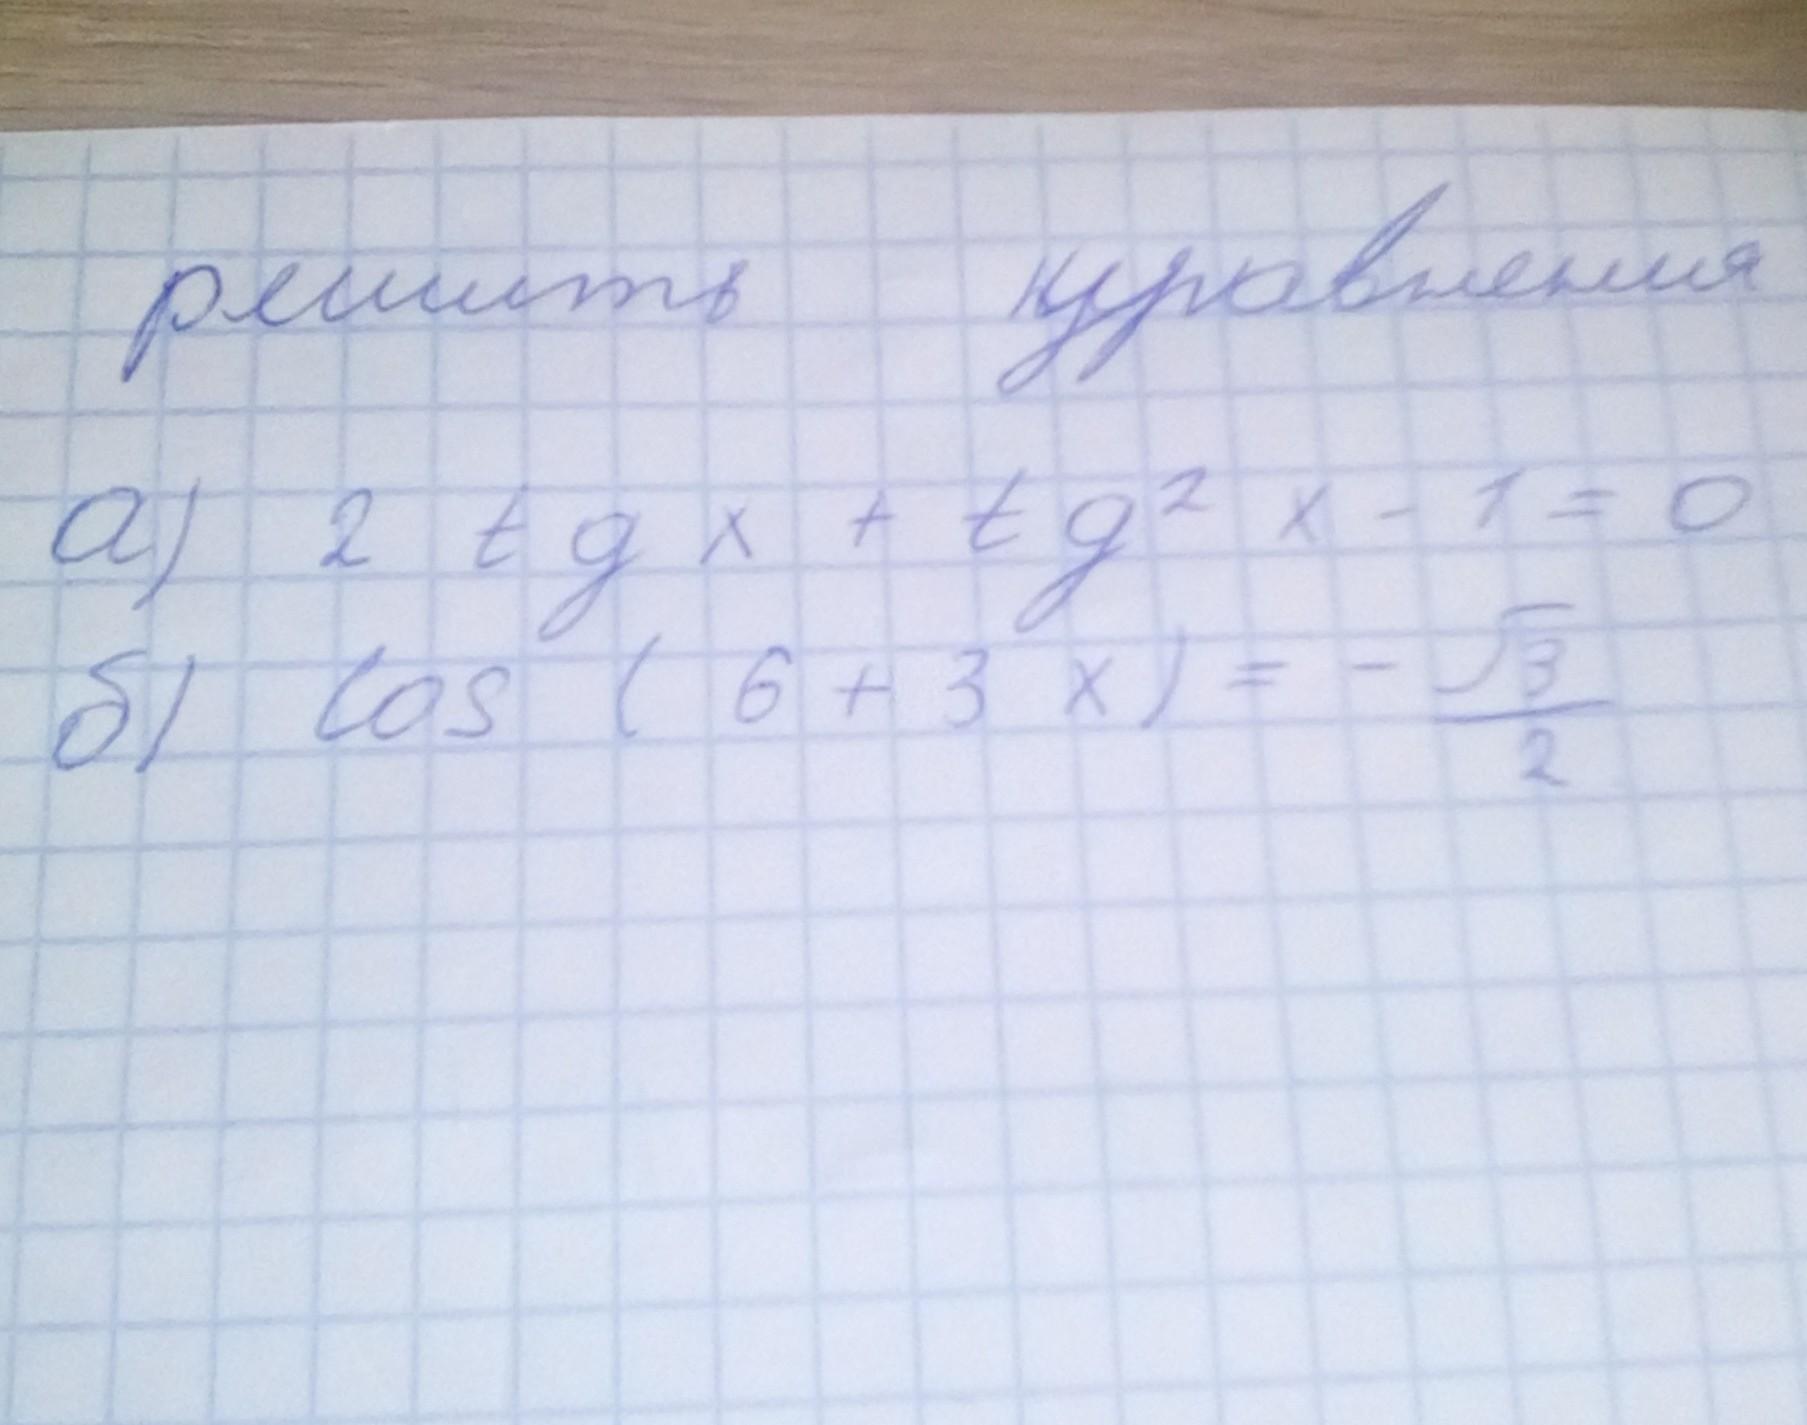 решить уравнения
а) 2 tg x + tg² x - 1 = 0
б) cos ( 6 + 3 x ) = - √3/2